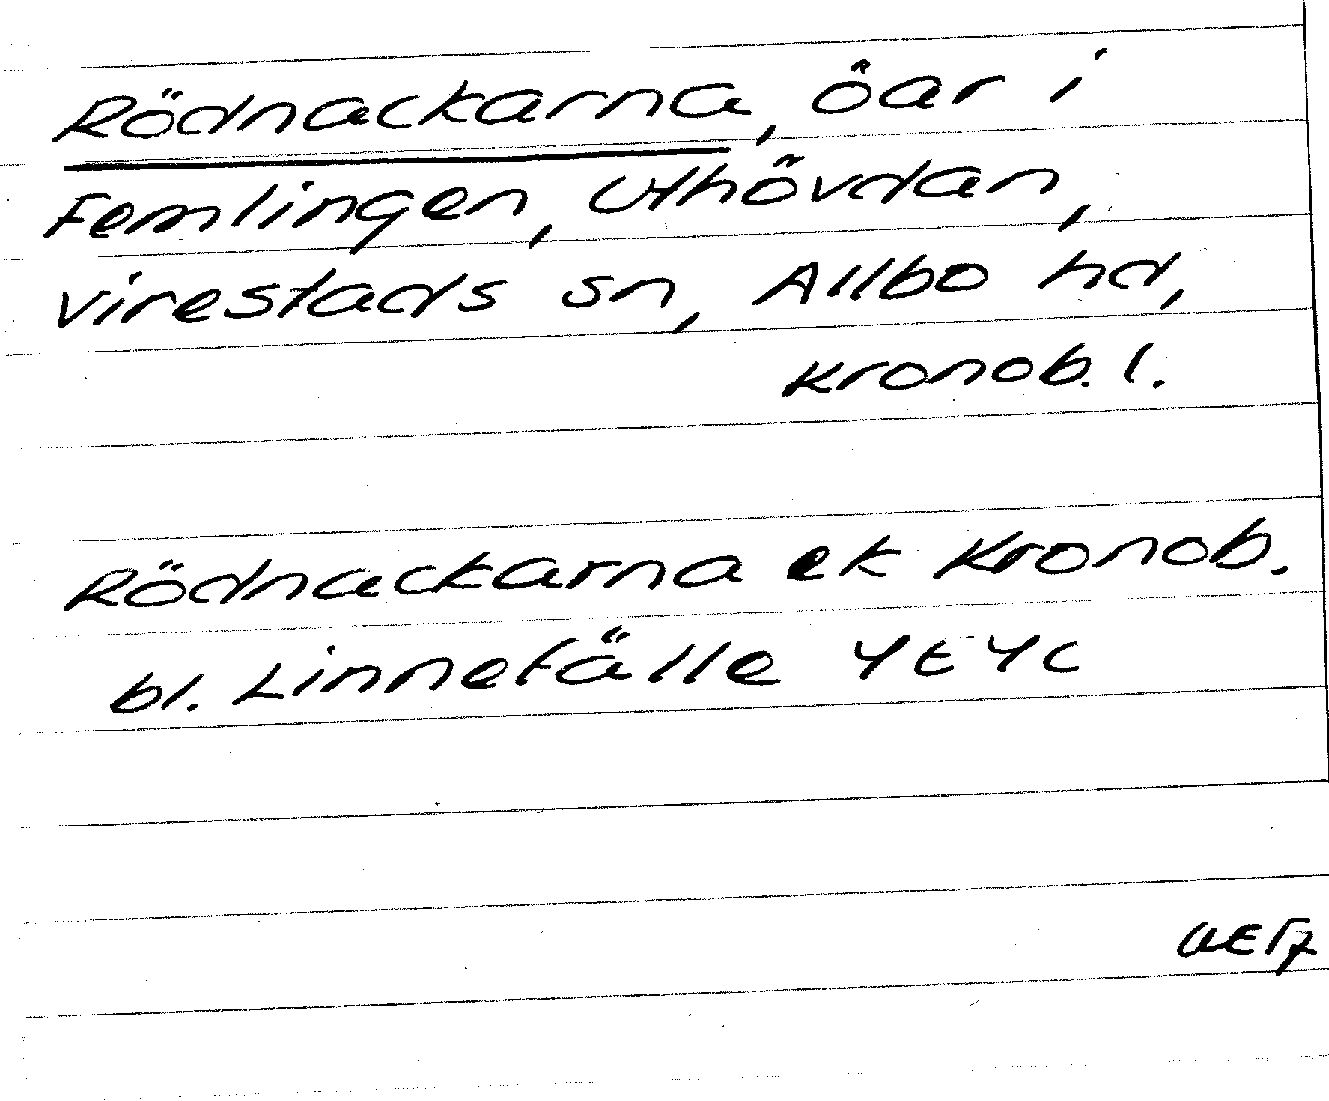 Rödnackarna, öar i
Femlingen, Uthövdan,
Virestads sn, Allbo hd,
Kronob. l.
Rödnackarna ek Kronob.
bl. Linnefälle 4E4c